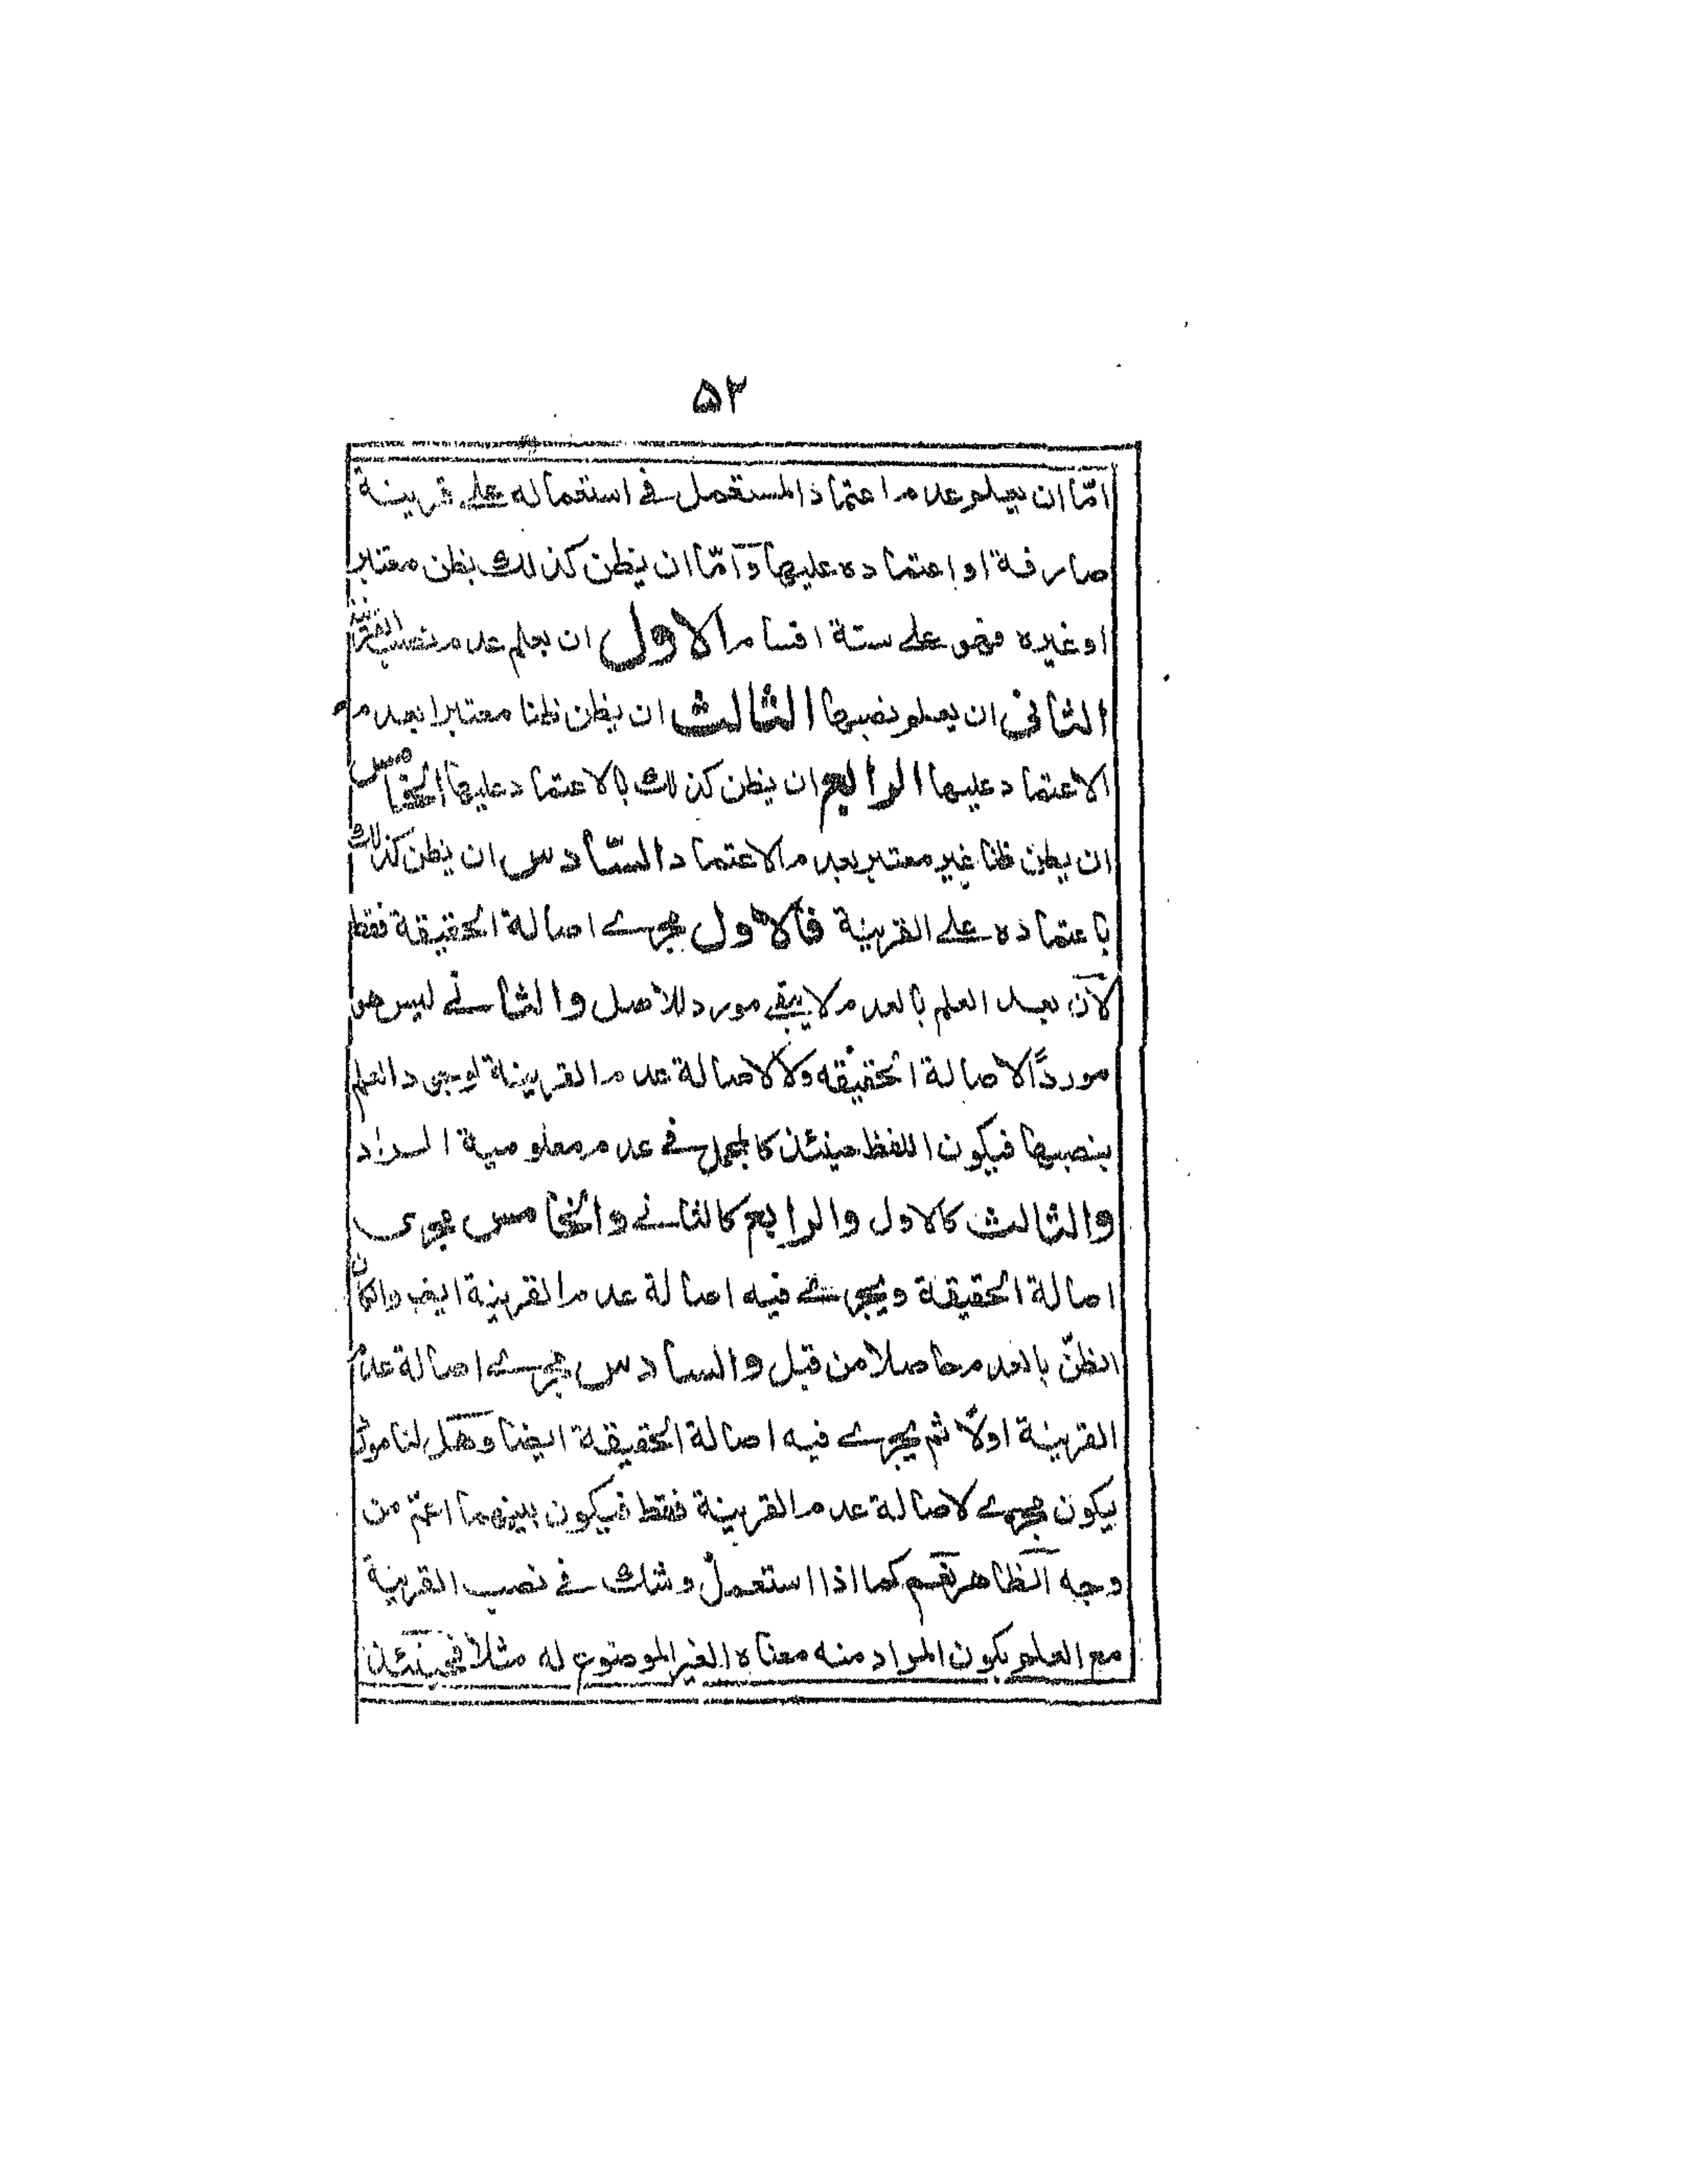 ۵۲
امّا ان يعلم عدم اعتماد المستعمل فى استعماله على قرينة
صارفة او اعتماده عليها وامّا ان يظن كذلك بظن معتبر
او غيره فهو على ستة اقسام الاول ان يعلم عدم نصب القرينة
الثانى ان يعلم نصبها الثالث ان يظن ظنا معتبرا بعدم
الاعتماد عليها الرابع ان يظن كذلك بالاعتماد عليها الخامس
ان يظن ظنا غير معتبر بعدم الاعتماد السّادس ان يظن كذلك
باعتماده على القرينة فالاول مجرے اصالة الحقيقة فقط
لانّ بعد العلم بالعدم لا يبقى مورد للاصل والثانے ليس هو
موردًا لاصالة الحقيقه ولا لاصالة عدم القرينة لوجود العلم
بنصبها فيكون اللفظ حينئذ كالمجمل فى عدم معلومية المراد
والثالث كالاول والرابع كالثانے والخامس مجرى
اصالة الحقيقة ويجرے فيه اصالة عدم القرينة ايضا وان كان
الظنّ بالعدم حاصلا من قبل والسادس مجرے اصالة عدم
القرينة اولًا ثم يجرے فيه اصالة الحقيقة ايضا وهل لنا مورد
يكون مجرے لاصالة عدم القرينة فقط فيكون بينهما اعمّ من
وجه الظاهر نعم كما اذا استعمل وشك فى نصب القرينة
مع العلم بكون المراد منه معناه الغير الموضوع له مثلا فحينئذ